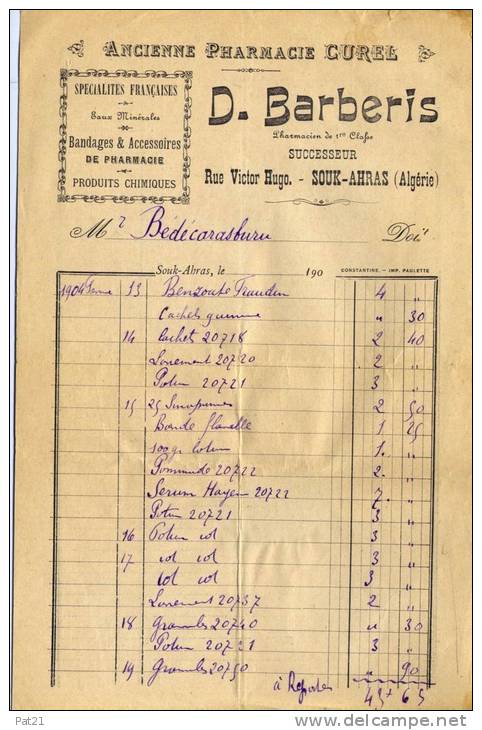 ANCIENNE PHARMACIE CUREL
SPÉCIALITÉS FRANÇAISES
Eaux Minérales
Bandages & Accessoires
DE PHARMACIE
PRODUITS CHIMIQUES
D. Barberis
Pharmacien de 1re Classe
SUCCESSEUR
Rue Victor Hugo. - SOUK-AHRAS (Algérie)
Mr Bédécarasburu Doit
Souk-Ahras, le 190 CONSTANTINE. - IMP. PAULETTE
1904 13 Benzoate 4 "
Cachets " 30
14 Cachets 20718 2 40
20720 2 "
Potion 20721 3 "
15 25 2 50
Bande flanelle 1 25
100gr 1 "
Pommade 20722 2 "
Serum Hayem 20722 7 "
Potion 20721 3 "
16 Potion id 3 "
17 id id 3 "
id id 3 "
20737 2 "
18 Granules 20740 " 30
Potion 20721 3 "
19 Granules 20750 " 90
à Reporter 43 65
Pat21
www.delcampe.net